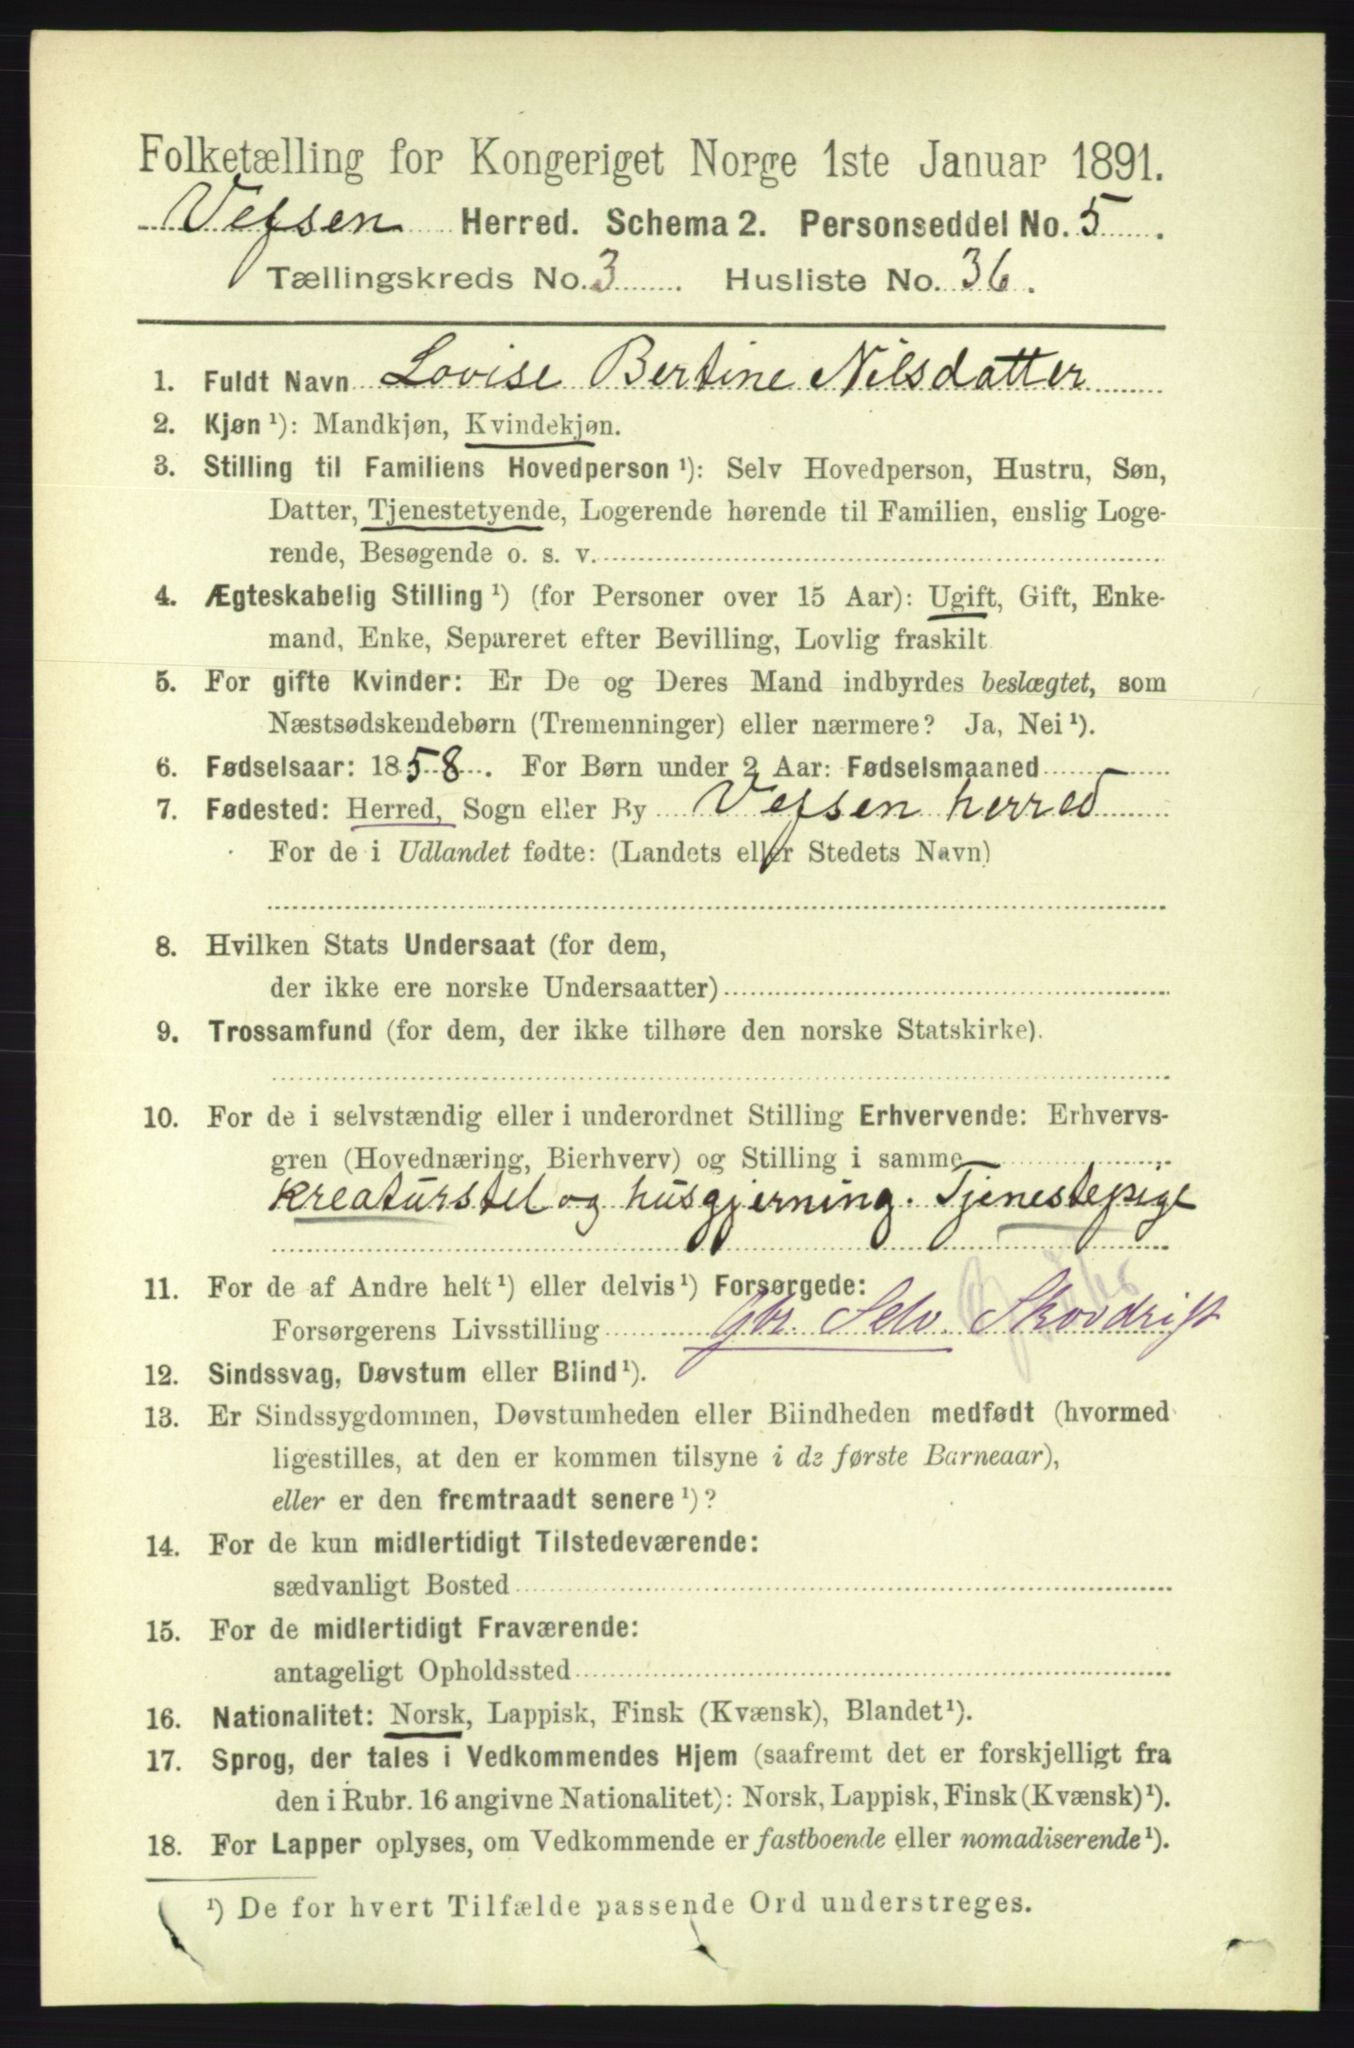 Folketælling for Kongeriget Norge 1ste Januar 1891.
Vefsen Herred. Schema 2. Personseddel No. 5.
Tællingskreds No. 3. Husliste No. 36.
1. Fuldt Navn Lovise Bertine Nilsdatter
2. Kjøn ¹): Mandkjøn, Kvindekjøn.
3. Stilling til Familiens Hovedperson ¹): Selv Hovedperson, Hustru, Søn,
Datter, Tjenestetyende, Logerende hørende til Familien, enslig Loge-
rende, Besøgende o. s. v.
4. Ægteskabelig Stilling ¹) (for Personer over 15 Aar): Ugift, Gift, Enke-
mand, Enke, Separeret efter Bevilling, Lovlig fraskilt
5. For gifte Kvinder: Er De og Deres Mand indbyrdes beslægtet, som
Næstsødskendebørn (Tremenninger) eller nærmere? Ja, Nei ¹).
6. Fødselsaar: 1858. For Børn under 2 Aar: Fødselsmaaned
7. Fødested: Herred, Sogn eller By Vefsen herred
For de i Udlandet fødte: (Landets eller Stedets Navn)
8. Hvilken Stats Undersaat (for dem,
der ikke ere norske Undersaatter)
9. Trossamfund (for dem, der ikke tilhøre den norske Statskirke).
10. For de i selvstændig eller i underordnet Stilling Erhvervende: Erhvervs-
gren (Hovednæring, Bierhverv) og Stilling i samme
kreaturstel og husgjerning. Tjenestepige
11. For de af Andre helt ¹) eller delvis ¹) Forsørgede:
Forsørgerens Livsstilling Gbr. Selv. Skovdrift
12. Sindssvag, Døvstum eller Blind ¹).
13. Er Sindssygdommen, Døvstumheden eller Blindheden medfødt (hvormed
ligestilles, at den er kommen tilsyne i de første Barneaar),
eller er den fremtraadt senere ¹)?
14. For de kun midlertidigt Tilstedeværende:
sædvanligt Bosted
15. For de midlertidigt Fraværende:
antageligt Opholdssted
16. Nationalitet: Norsk, Lappisk, Finsk (Kvænsk), Blandet ¹).
17. Sprog, der tales i Vedkommendes Hjem (saafremt det er forskjelligt fra
den i Rubr. 16 angivne Nationalitet): Norsk, Lappisk, Finsk (Kvænsk) ¹).
18. For Lapper oplyses, om Vedkommende er fastboende eller nomadiserende ¹).
¹) De for hvert Tilfælde passende Ord understreges.